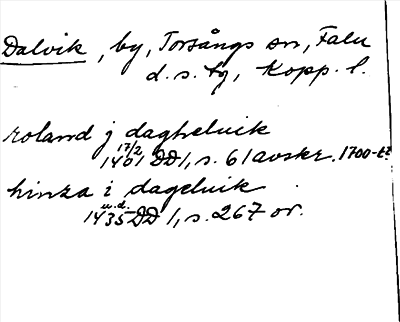 Dalvik, by, Torsångs sn, Falu
d. s. tg, Kopp. l.
roland j dagheluik
17/2 1401 DD 1, s. 61 avskr. 1700-t?
hinza i dageluik
u.d. 1435 DD 1, s. 267 or.